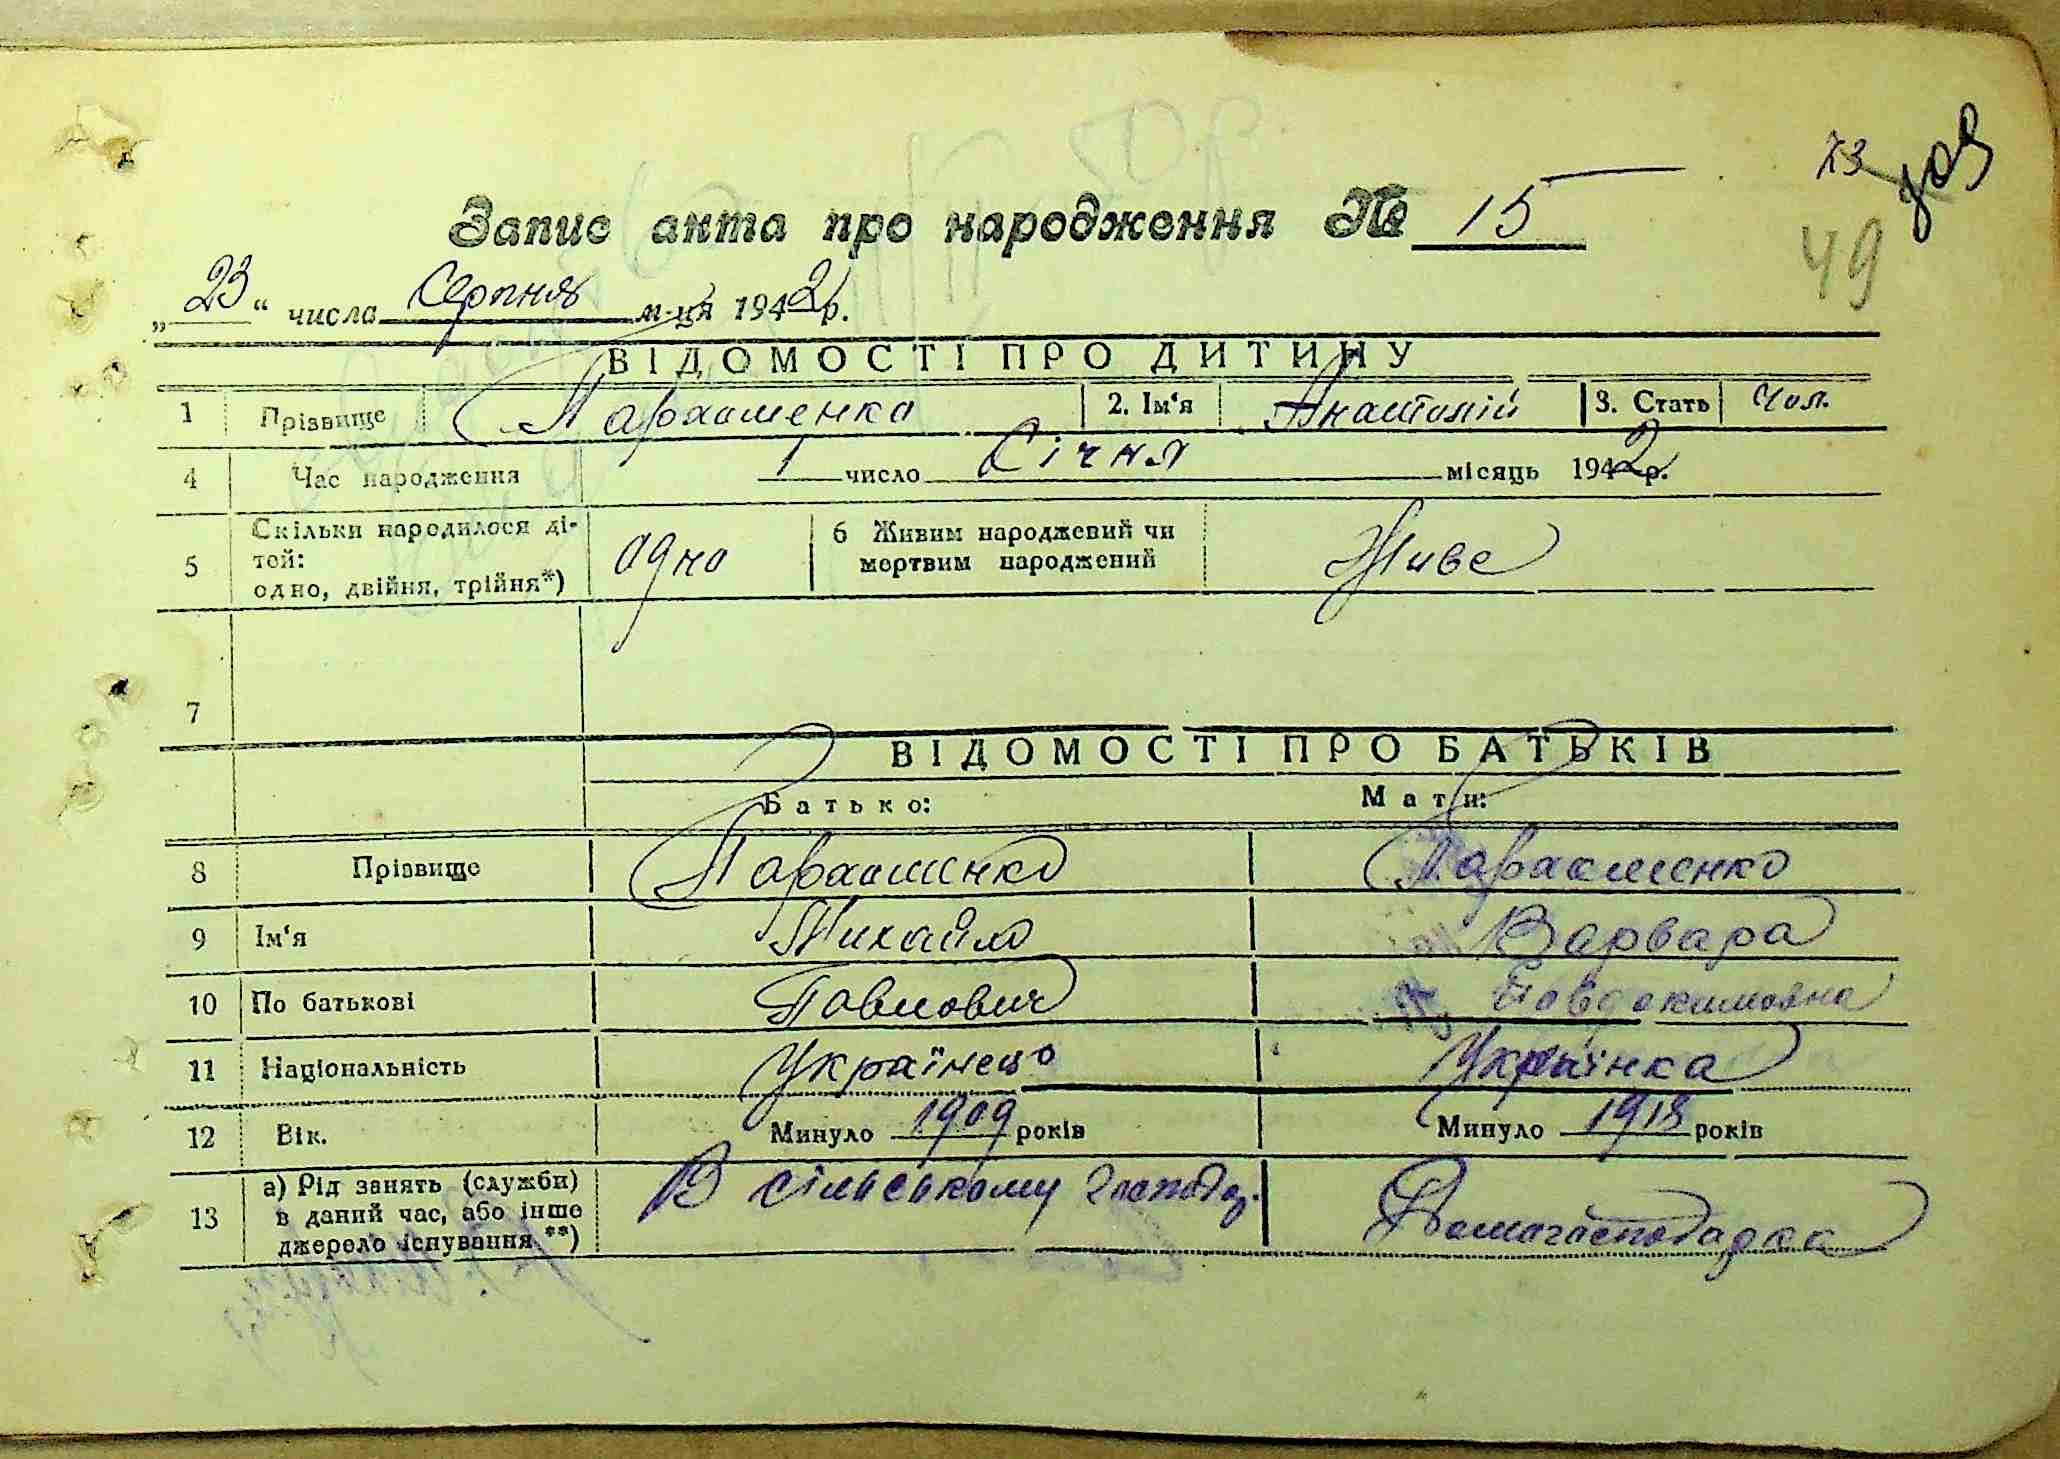 73
дов
49
Запис акта про народження № 15
„23“ числа Серпня м-ця 1942 р.
ВІДОМОСТІ ПРО ДИТИНУ
1 Прізвище Парасменко 2. Ім'я Анатолій 3. Стать Чол.
4 Час народження 1 число Січня місяць 1942 р.
5 Скільки народилося ді-
тей:
одно, двійня, трійня*) одно
6 Живим народжений чи
мертвим народжений Живе
7
ВІДОМОСТІ ПРО БАТЬКІВ
Батько: Мати:
8 Прізвище Парасменко Парасменко
9 Ім'я Михайло Варвара
10 По батькові Павлович Явдокимовна
11 Національність Українець Українка
12 Вік. Минуло 1909 років Минуло 1918 років
13 а) Рід занять (служби)
в даний час, або інше
джерело існування **) В сільському господар. Домагосподарка